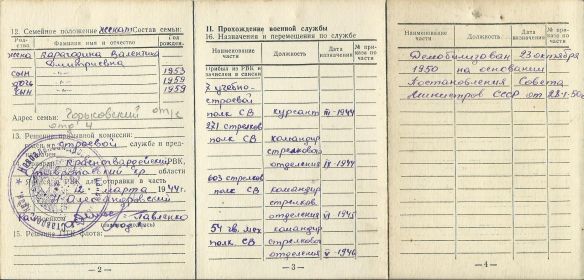 12. Семейное положение женат Состав семьи:
Родство
Фамилия имя и отчество
Год рожден.
жена
Карагодина Валентина
Дмитриевна
сын
1953
дочь
1959
сын
1959
Адрес семьи: Горьковский отд/с
отд 4
13. Решением призывной комиссии:
годен к строевой службе и пред-
Красногвардейский РВК,
Ставропольский кр. области
РВК для отправки в часть
"12" марта 1944 г.
Александровский
Райвоенком
Павленко
15. Решение ГВК флота:
— 2 —
II. Прохождение военной службы
16. Назначения и перемещения по службе
Наименование части
Должность
Дата назначения
№ приказа по части
Прибыл из РВК и зачислен в списки
7 учебно-
строевой
полк СВ
курсант
III-1944
271 стрелков
полк СВ
командир
стрелковой
отделения
IX-1944
603 стрелков
полк СВ
командир
стрелков.
отделения
VI 1945
54 гв. мех
командир
полк. СВ
стрелковой
отделения
VI-1946
— 3 —
Наименование части
Должность
Дата назначения
№ приказа по части
Демобилизован 23 октября
1950 на основании
Постановления Совета
Министров СССР от 28.1.50г
— 4 —